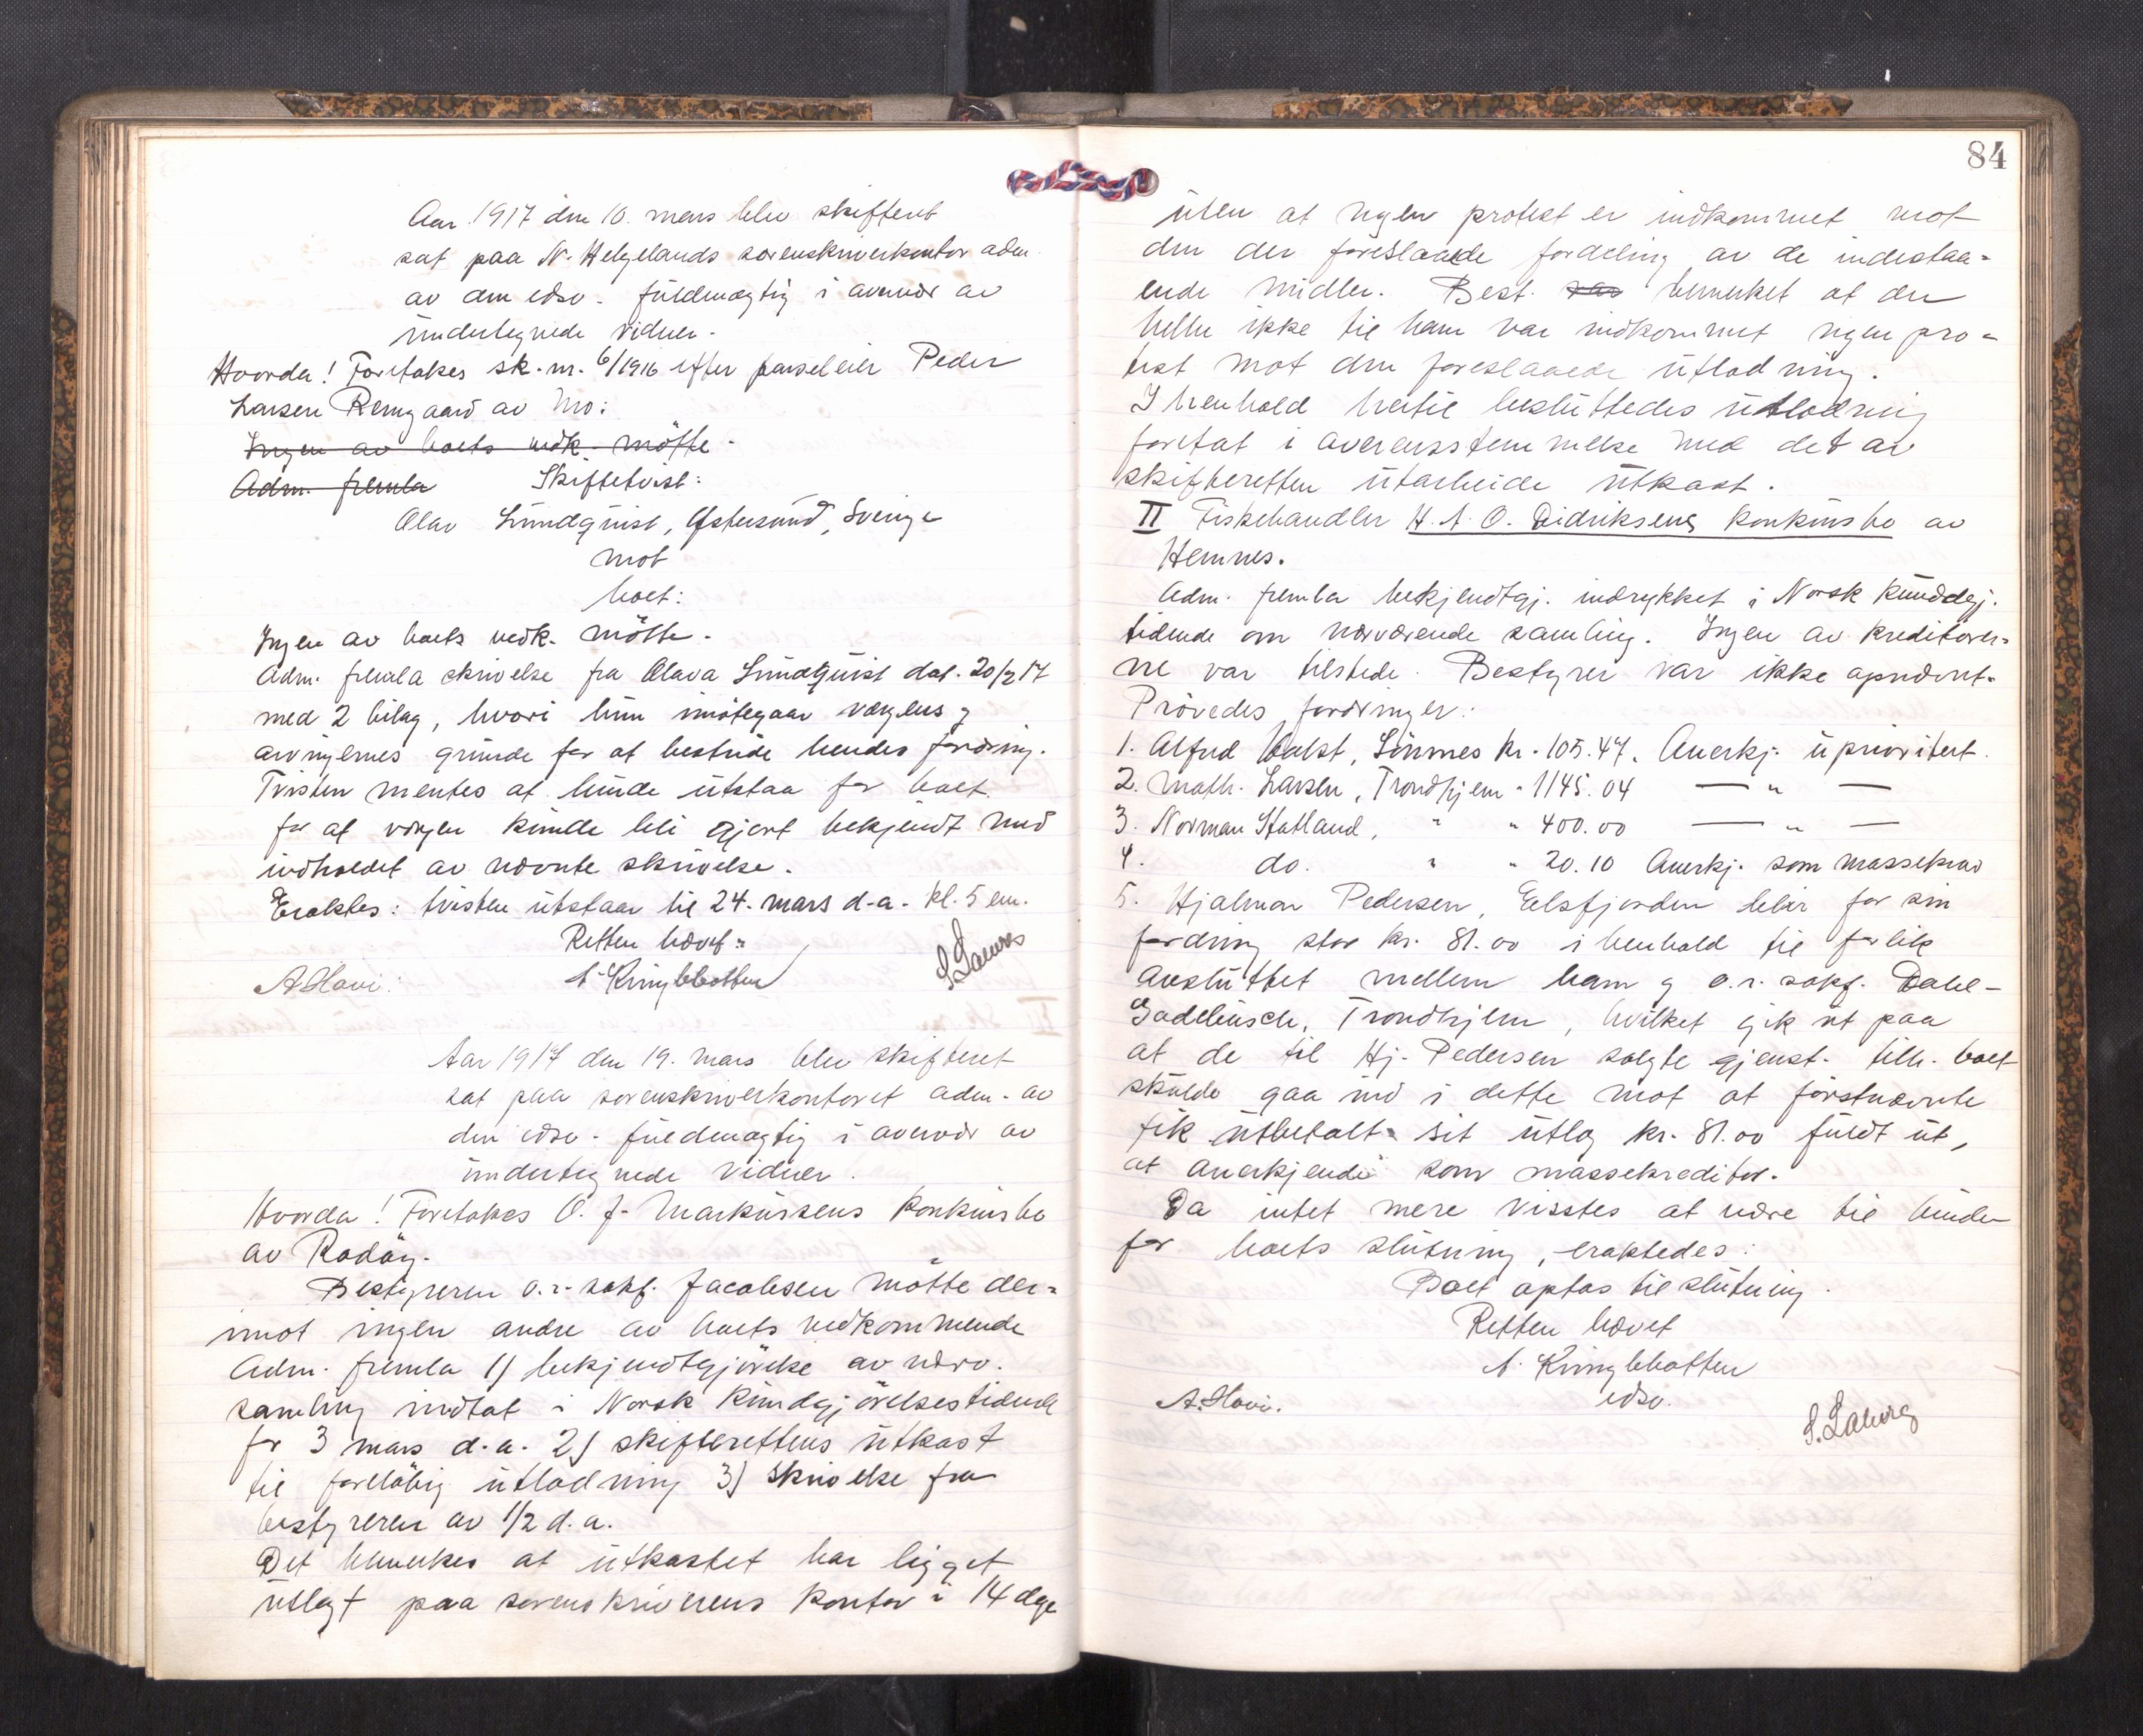 Aar 1917 den 10. mars blev skifteret
sat paa N. Helgelands sorenskriverkontor adm.
av den edsv. fuldmægtig i overvær av
undertegnede vidner.
Hvorda! Foretokes sk. nr. 6/1916 efter parseleier Peder
Larsen Remgaard av Mo:
Ingen av boets vedk. møtte.
Adm. fremla Skiftetvist:
Olav Lundquist, Østersund, Sverige
mot
boet:
Ingen av boets vedk. møtte.
Adm. fremla skrivelse fra Olava Lundquist dat. 20/2 17
med 2 bilag, hvori hun imøtegaar vergens og
arvingernes grunde for at bestride hendes fordring.
Tvisten mentes at burde utstaa for boet
for at vergen kunde bli gjort bekjendt med
indholdet av nævnte skrivelse.
Eraktes: tvisten utstaar til 24. mars d.a. kl. 5 em.
Retten hævet:
A. Hovi. N. Kringlebotten S. Laberg
Aar 1917 den 19. mars blev skifteret
sat paa sorenskriverkontoret adm. av
den edsv. fuldmægtig i overvær av
undertegnede vidner.
Hvorda! Foretokes O. J. Markussens konkursbo
av Rødøy.
Bestyreren o.r. sakf. Jacobsen møtte der=
imot ingen andre av boets vedkommende
Adm. fremla 1) bekjendtgjørelse av nærv.
samling indtat i Norsk Kundgjørelsestidende
for 3 mars d.a. 2) skifterettens utkast
til foreløbig utlodning 3) skrivelse fra
bestyreren av 1/2 d.a.
Det bemerkes at utkastet har ligget
utlagt paa sorenskriverens kontor i 14 dage
84
uten at nogen protest er indkommet mot
den der foreslaaede fordeling av de indestaa=
ende midler. Best. var bemerket at der
heller ikke til ham var indkommet nogen pro=
test mot den foreslaaede utlodning.
I henhold hertil besluttedes utlodning
foretat i overensstemmelse med det av
skifteretten utarbeide utkast.
II Fiskehandler H. A. O. Didriksens konkursbo av
Hemnes.
Adm. fremla bekjendtgj. indrykket i Norsk Kundgj.
tidende om nærværende samling. Ingen av kreditorer=
ne var tilstede. Bestyrer var ikke opnævnt.
Prøvedes fordringer:
1. Alfred Valst, Sunnes kr. 105.47. Anerkj. uprioritert.
2. Math. Larsen, Trondhjem " 1145.04 — " —
3. Norman Hatland, " " 400.00 — " —
4. do. " " 20.10 Anerkj. som massekrav
5. Hjalmar Pedersen, Elsfjorden blir for sin
fordring stor kr. 81.00 i henhold til forlik
avsluttet mellem ham og o.r. sakf. Dahl-
Gadebusch, Trondhjem, hvilket gik ut paa
at de til Hj. Pedersen solgte gjenst. tilh. boet
skulde gaa ind i dette mot at førstnævnte
fik utbetalt sit utlæg kr. 81.00 fuldt ut,
at anerkjende som massekreditor.
Da intet mere visstes at være til hinder
for boets slutning, eraktedes:
Boet optas til slutning.
Retten hævet
N. Kringlebotten
A. Hovi. edsv.
S. Laberg